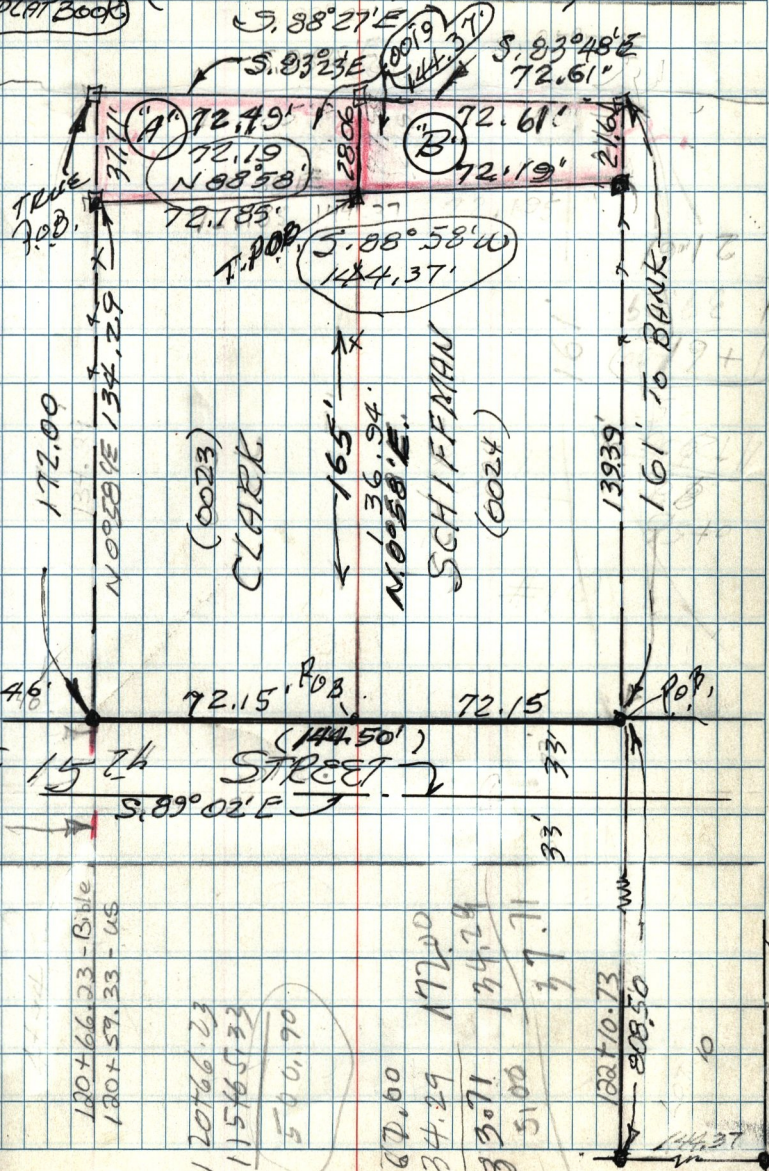 PLAT BOOK
S. 88°27'E
S. 83°23'E
0019
144.37'
S. 83°48'E
72.61'
"A"
72.49'
72.19
N 88°58'
37.71'
28.06
"B"
72.61'
72.19'
21.61
TRUE
P.O.B.
72.185'
T.POB
S. 88° 58' W
144.37'
172.00
N 0°58'E 134.29
(0023)
CLARK
165'
136.94'
N.0°58'E.
SCHIFFMAN
(0024)
139.39'
161' TO BANK
46'
72.15'
P.O.B.
72.15
P.O.B.
(144.50')
15 TH STREET
S. 89° 02' E
33'
33'
120+66.23 - Bible
120+59.33 - US
120+66.23
115+65.33
500.90
34.29
172.0
134.29
37.71
33.71
5.00
122+10.73
808.50
144.37